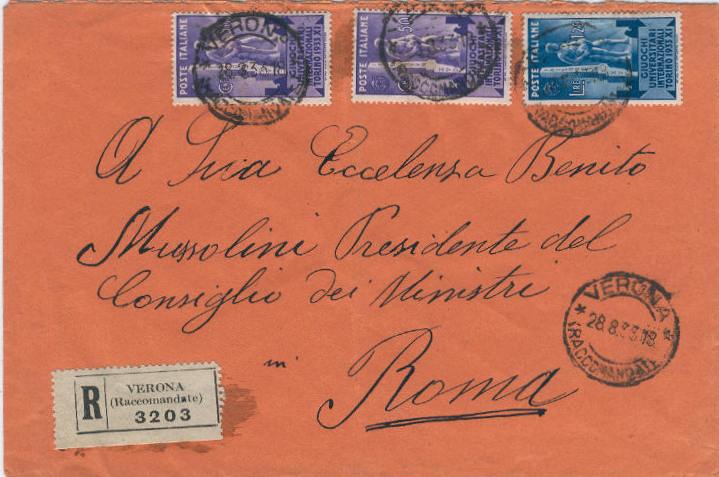 POSTE ITALIANE
GIUOCHI
UNIVERSITARI
INTERNAZIONALI
TORINO 1933 XI
VERONA
RACCOMANDATE
POSTE ITALIANE
50
GIUOCHI
UNIVERSITARI
INTERNAZIONALI
TORINO 1933 XI
POSTE ITALIANE
LIRE 1,25
GIUOCHI
UNIVERSITARI
INTERNAZIONALI
TORINO 1933 XI
A Sua Eccelenza Benito
Mussolini Presidente del
Consiglio dei Ministri
in
Roma
VERONA
28.8.33.18
(RACCOMANDATE)
R
VERONA
(Raccomandate)
3203